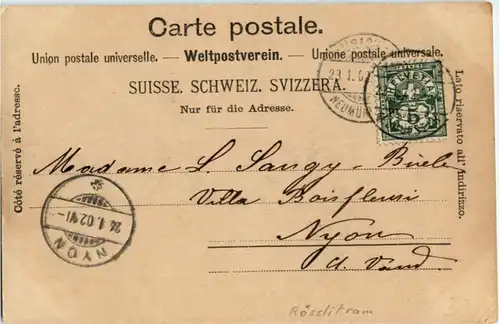 Carte postale.
Union postale universelle. — Weltpostverein. — Unione postale universale.
SUISSE. SCHWEIZ. SVIZZERA.
Nur für die Adresse.
Côté réservé à l'adresse.
Lato riservato all' Andirizzo.
HELVETIA
5
23.I.02
NEUMÜN
Madame L. Sangy-Biele
Villa Boisfleuri
Nyon
d. Vaud.
24.I.02
NYON
Rösslitram